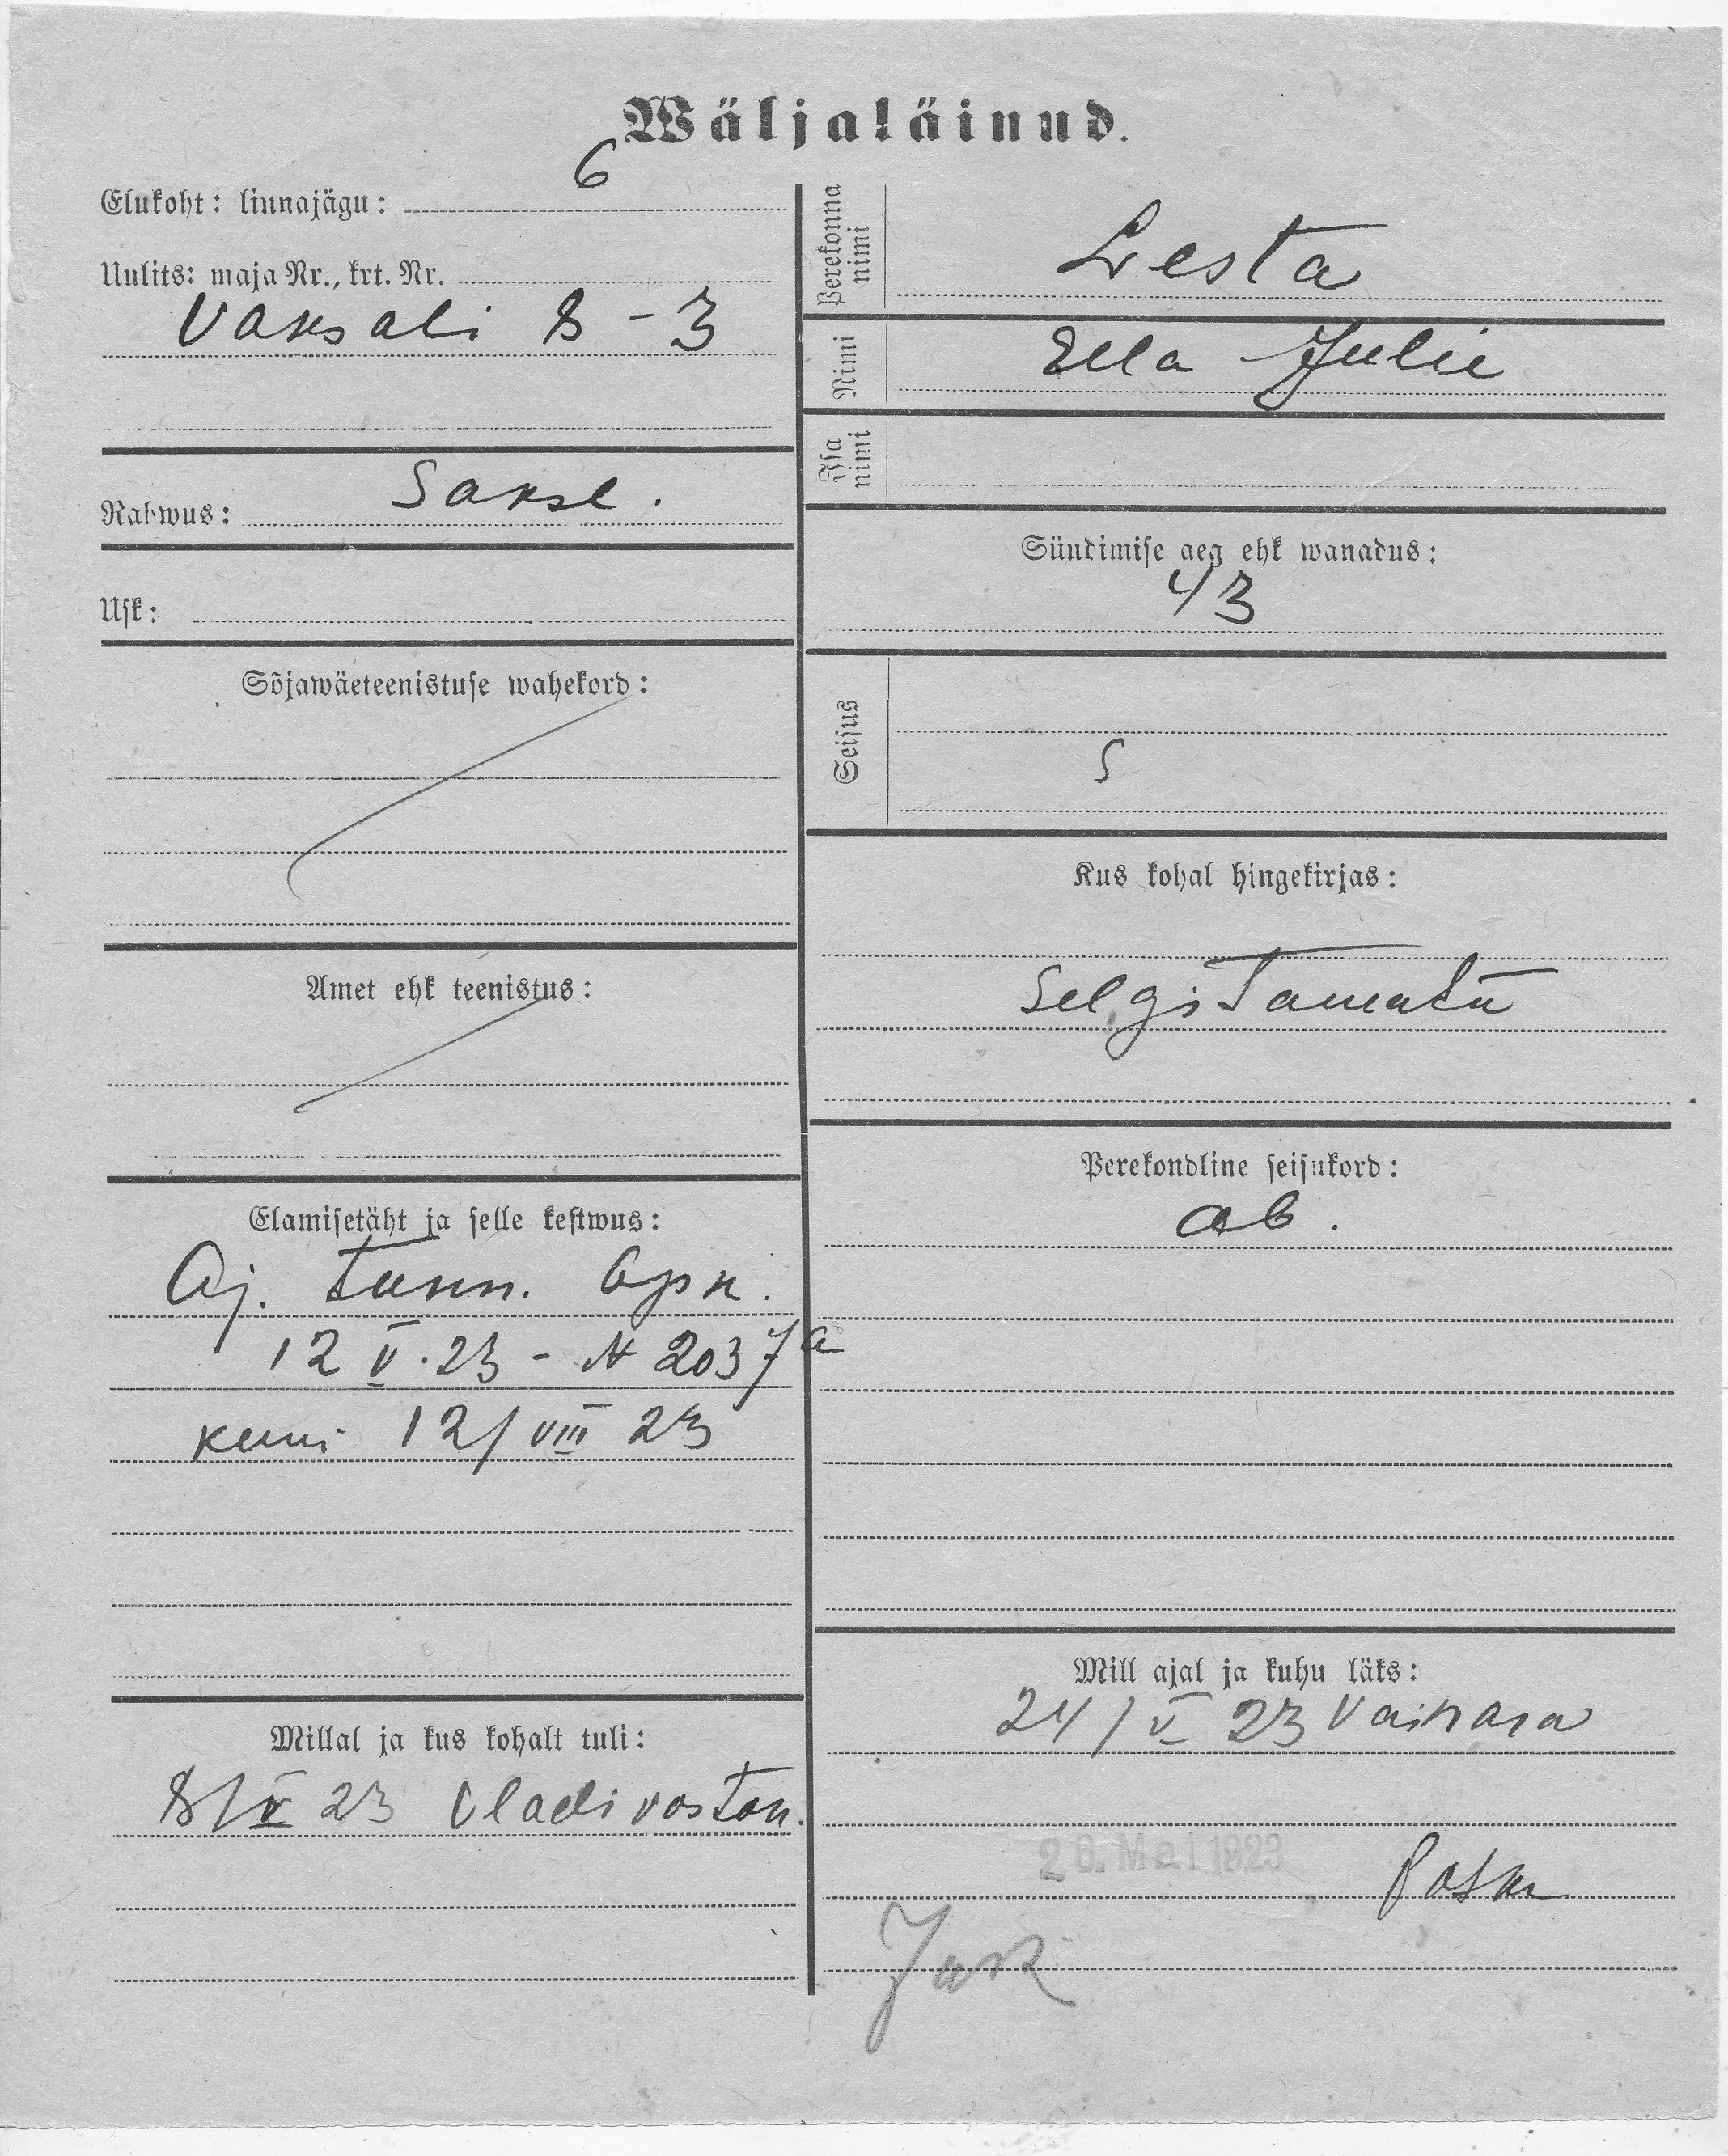 Wäljaläinud.
Elukoht: linnajägu: 6
Uulits: maja Nr., krt. Nr.
Vaksali 8 - 3
Rahwus: Sakse.
Usk:
Sõjawäeteenistuse wahekord:
Amet ehk teenistus:
Elamisetäht ja selle kestwus:
Aj. tunn.
12 V. 23 - N 2037a
kuni 12/VIII 23
Millal ja kus kohalt tuli:
8/V 23 Vladivostok.
Perekonna nimi
Lesta
Nimi
Ella Julie
Isa nimi
Sündimise aeg ehk wanadus:
43
Seisus
Kus kohal hingekirjas:
Selgitamatu
Perekondline seisukord:
ab.
Mill ajal ja kuhu läks:
24/V 23 Vaivara
26. Mai 1923